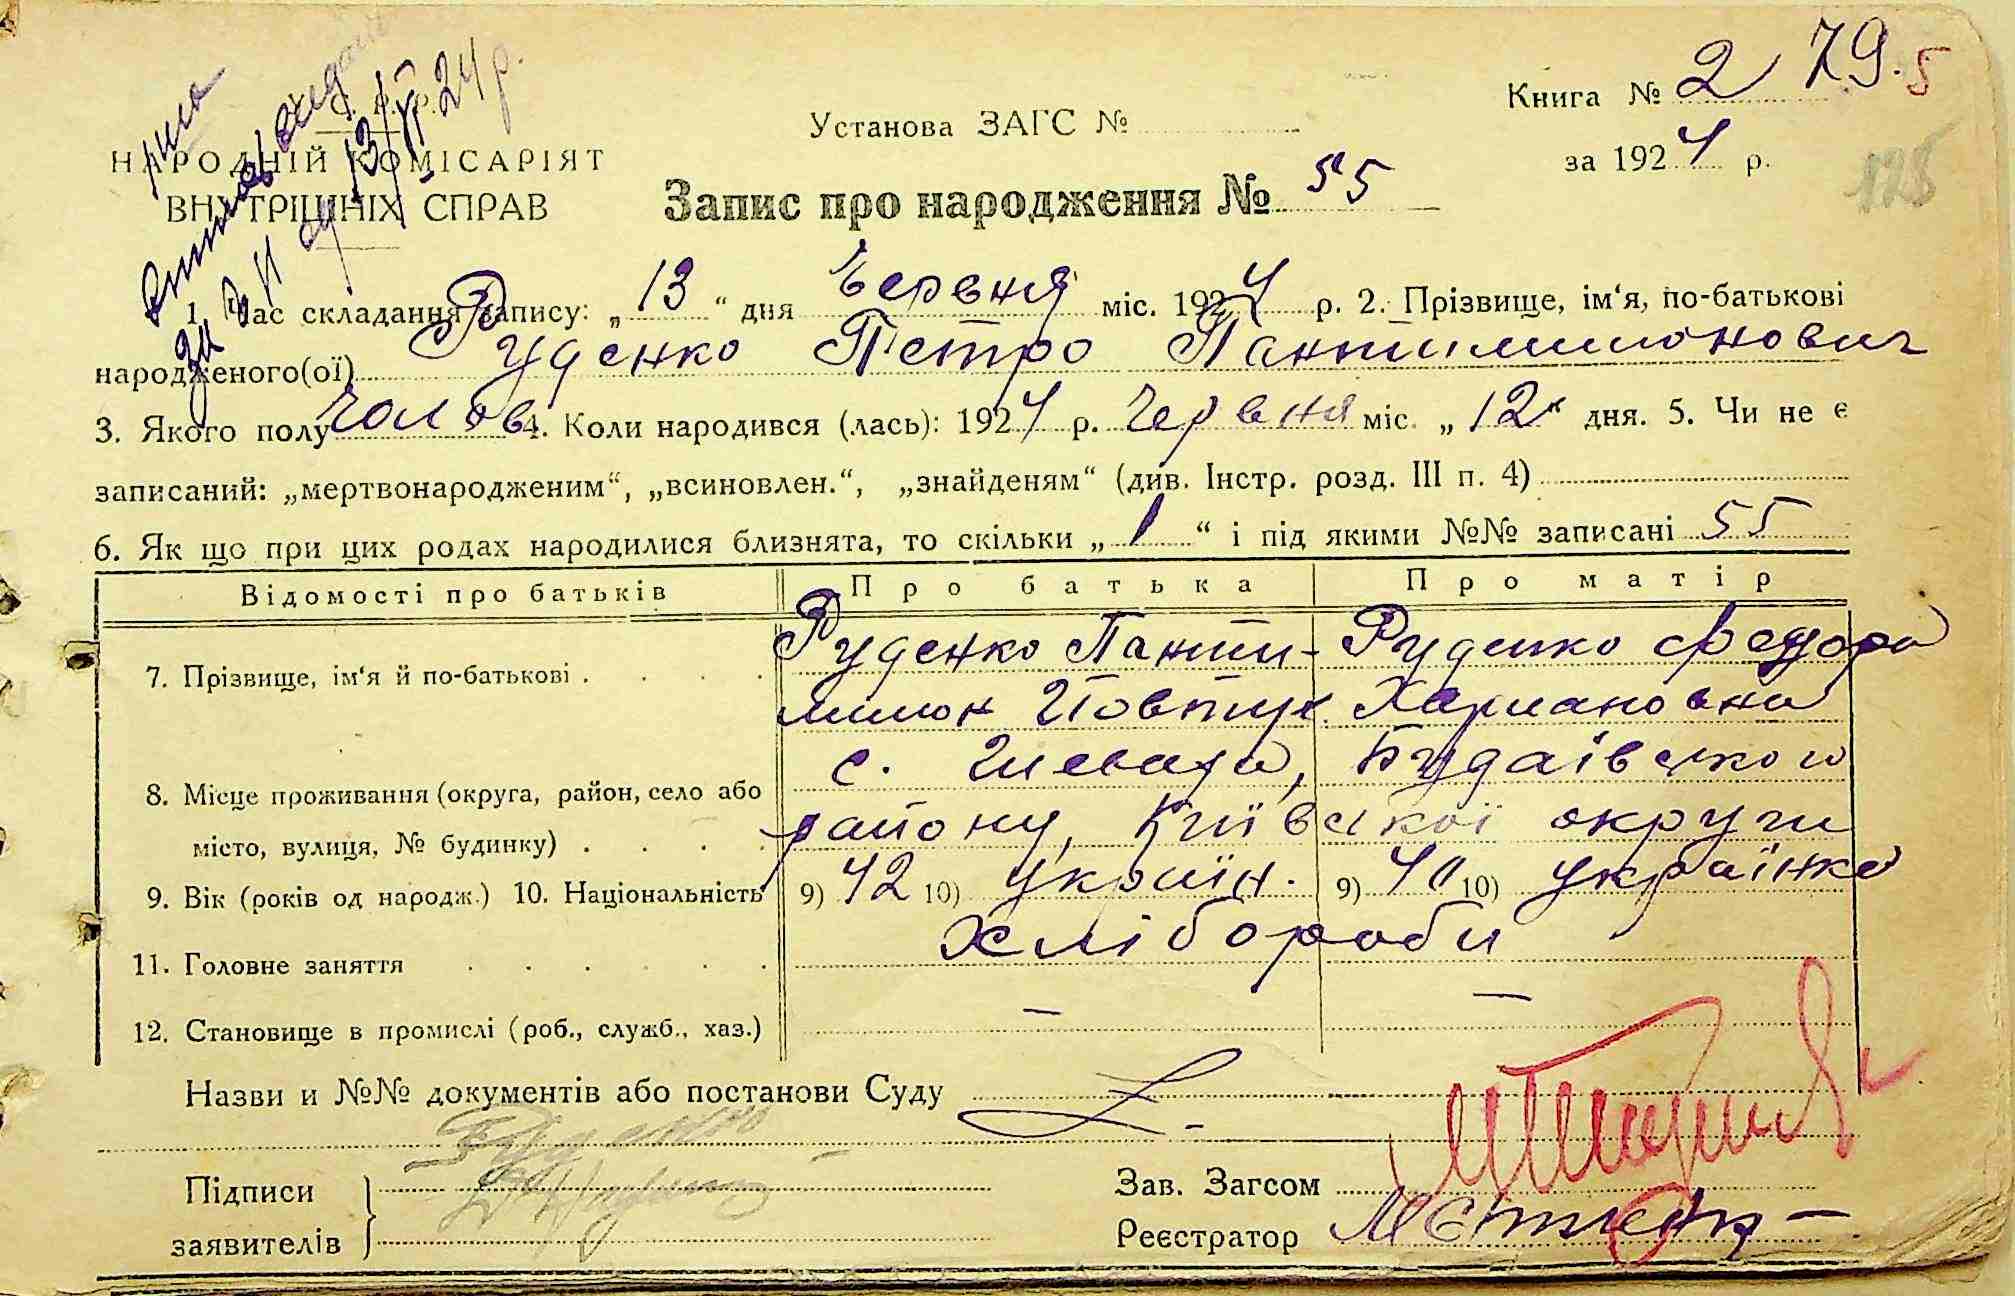 Книга № 2 79. 5
Установа ЗАГС №
за 1924 р.
125
НАРОДНІЙ КОМІСАРІЯТ
ВНУТРІШНІХ СПРАВ
13/VI 24 р.
Запис про народження № 55
1. Час складання запису: „13“ дня Червня міс. 1924 р. 2. Прізвище, ім‘я, по-батькові
народженого(ої) Руденко Петро Пантилимонович
3. Якого полу Чолов. 4. Коли народився (лась): 1924 р. Червня міс. „12“ дня. 5. Чи не є
записаний: „мертвонародженим“, „всиновлен.“, „знайденям“ (див. Інстр. розд. III п. 4)
6. Як що при цих родах народилися близнята, то скільки „1“ і під якими №№ записані 55
Відомості про батьків Про батька Про матір
7. Прізвище, ім‘я й по-батькові . . . . Руденко Панти- Руденко Федора
лимон Йовтух. Харлановна
8. Місце проживання (округа, район, село або с. Будаівського
місто, вулиця, № будинку) . . . . району, Київської округи
9. Вік (років од народж.) 10. Національність 9) 42 10) україн. 9) 40 10) українка
11. Головне заняття . . . . . . Хлібороби
12. Становище в промислі (роб., служб., хаз.) — —
Назви и №№ документів або постанови Суду
Руденко
Підписи
заявителів
Зав. Загсом
Реєстратор